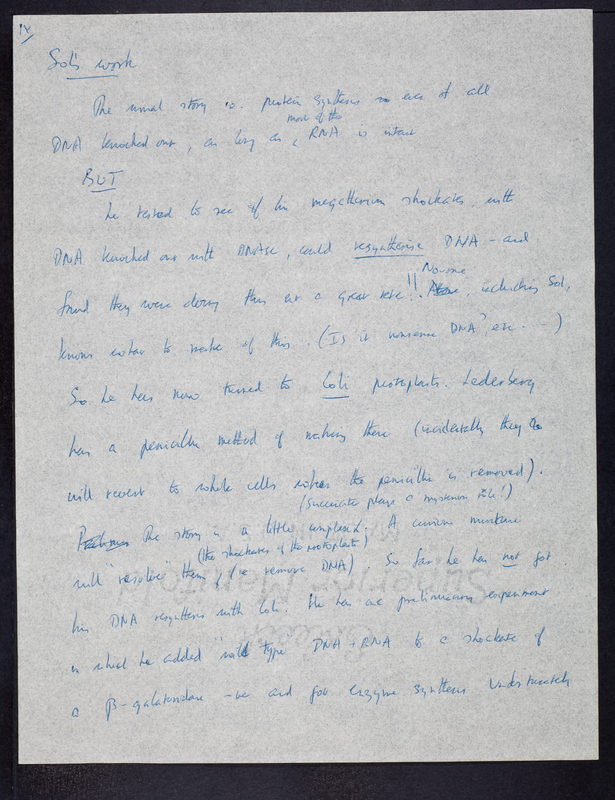 IV
Sol's work
The usual story is. protein synthesis on even if all
most of the
DNA knocked out, as long as, RNA is intact
BUT
he tested to see if his megatherium shockates, with
DNA knocked out with DNAse, could resynthesise DNA - and
found they were doing this at a great rate!!. No one, including Sol,
knows what to make of this. (Is it nonsense DNA?, etc. ...)
So he has now turned to Coli protoplasts. Lederberg
has a penicillin method of making them (incidentally they
will revert to whole cells when the penicillin is removed).
(succinate plays a mysterious role!)
The story is a little complicated. A curious mixture
(the shockates of the protoplasts)
will "resolve" them, (i.e. remove DNA) So far he has not got
his DNA resynthesis with Coli. He has one preliminary experiment
in which he added "wild type" DNA + RNA to a shockate of
a β-galatosidase -ve and got enzyme synthesis. Unfortunately
Superior Manifold